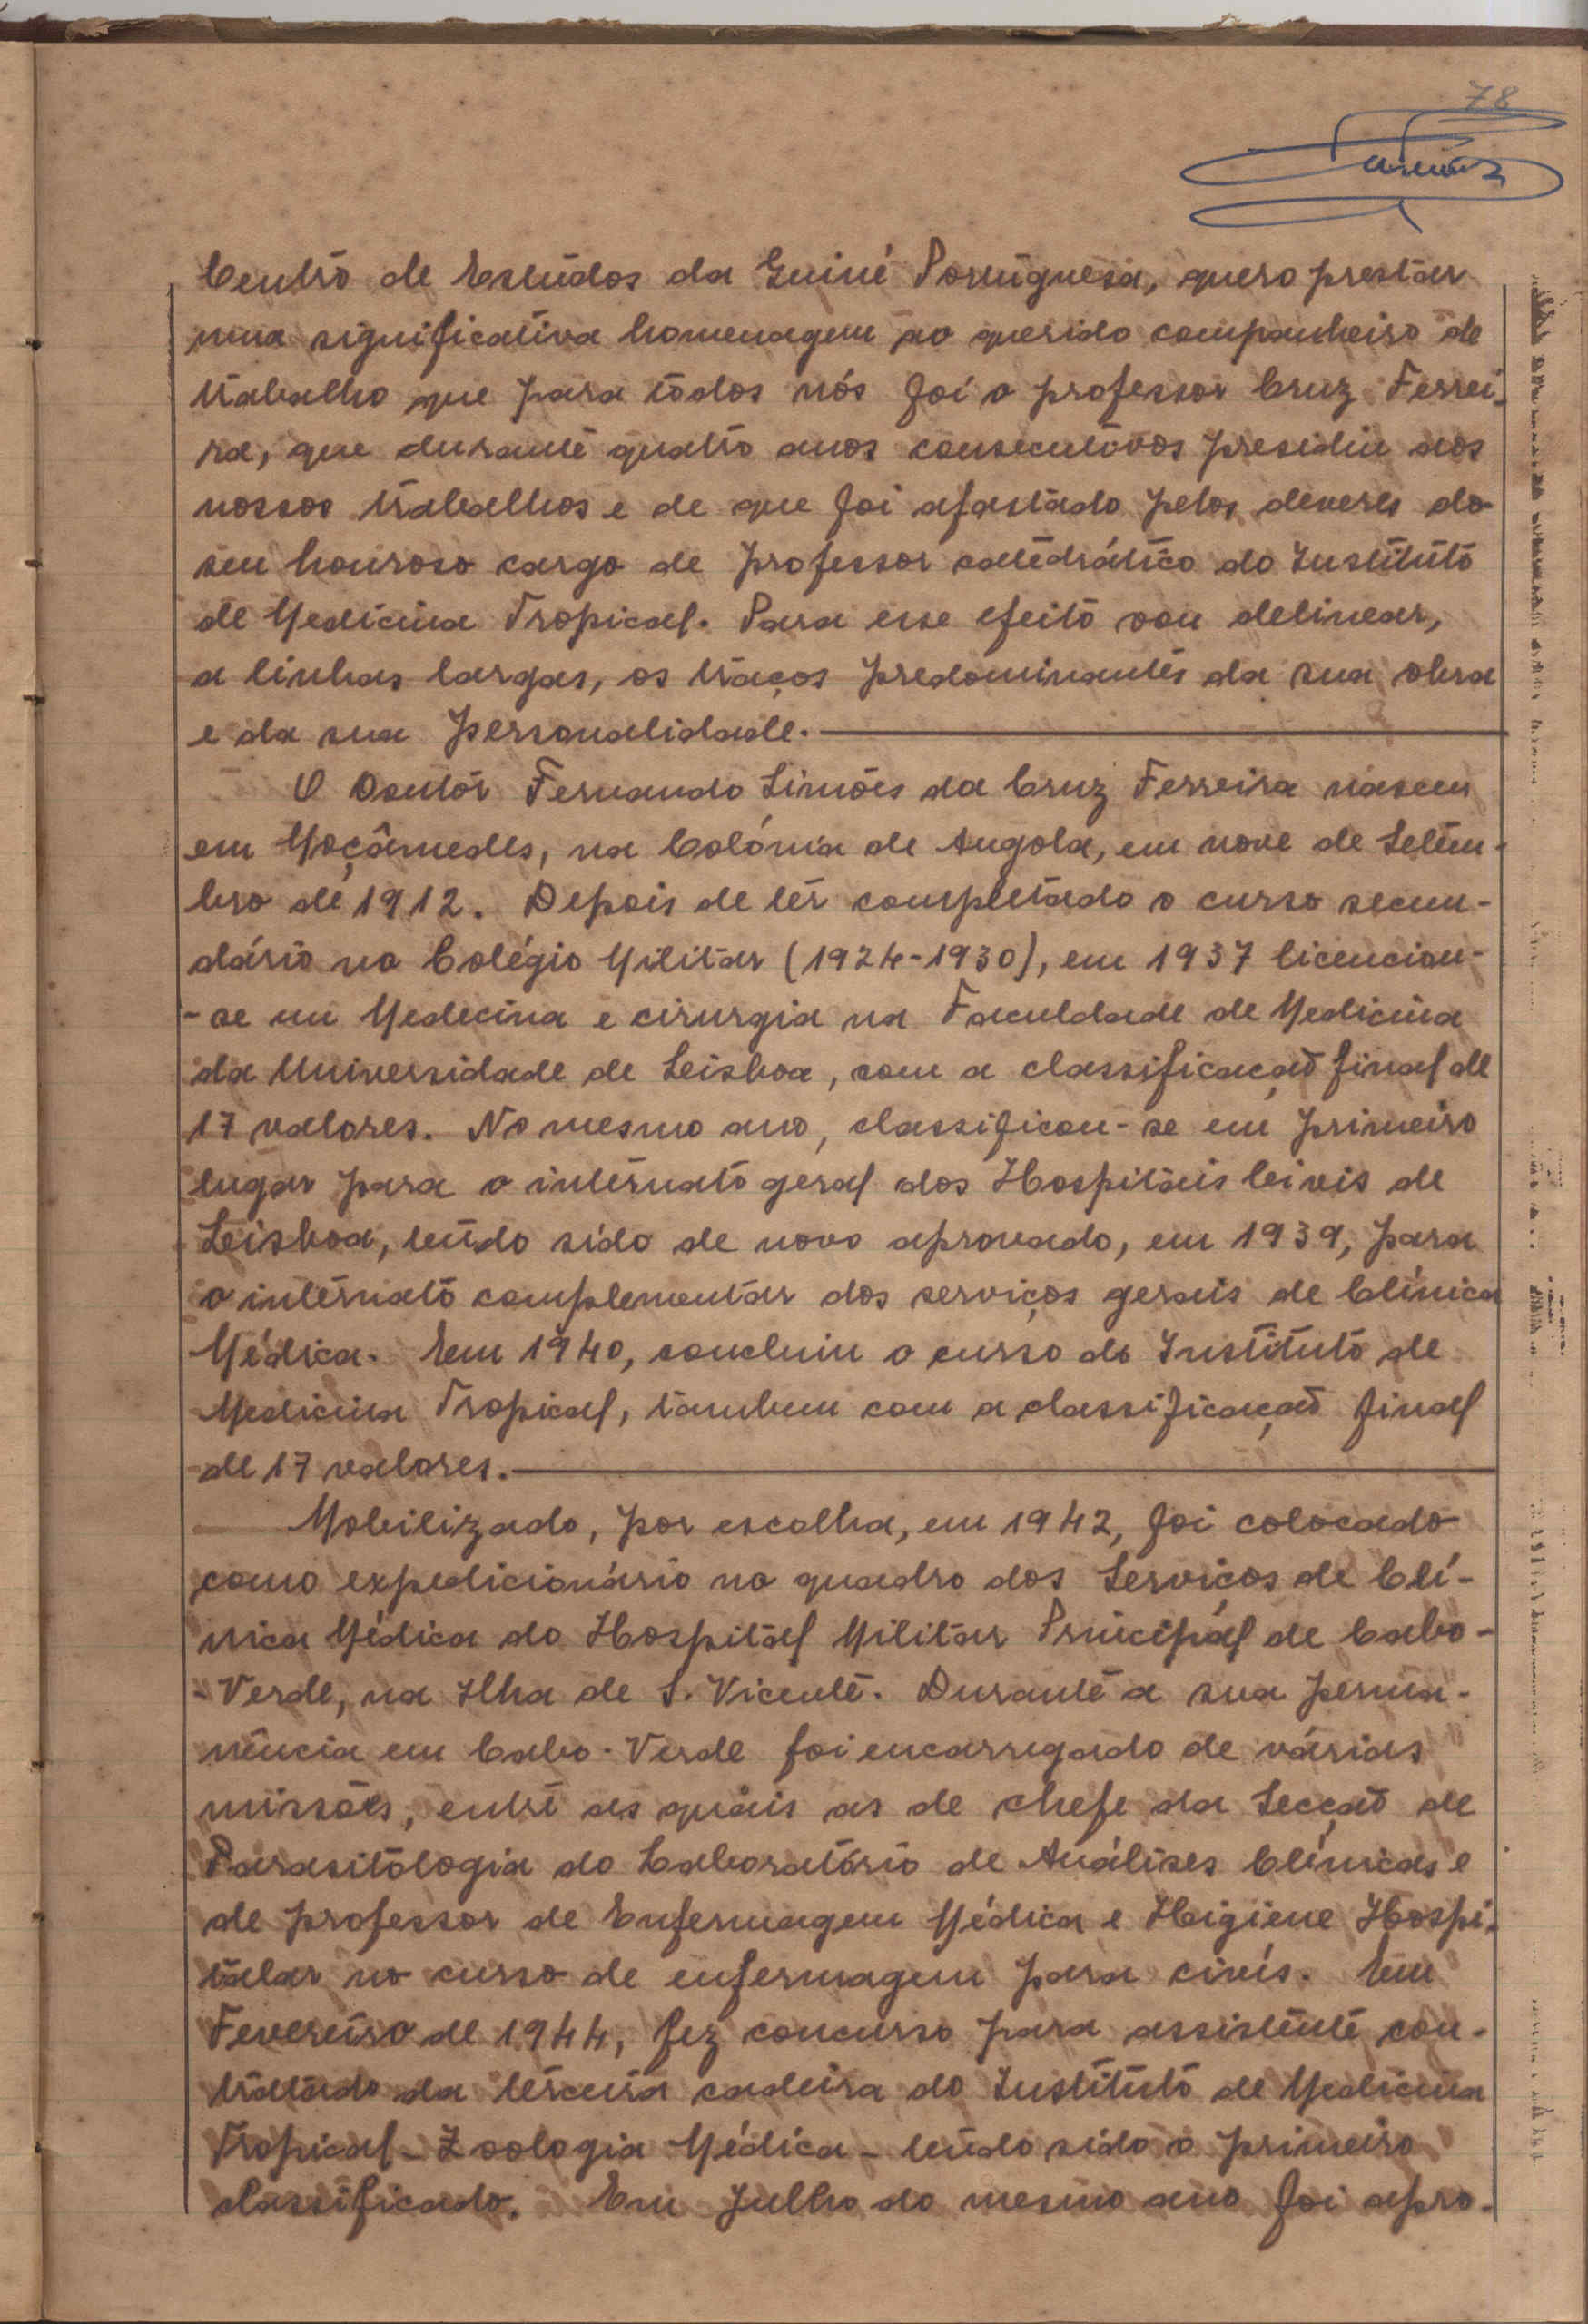 78
Centro de Estudos da Guiné Portuguesa, quero prestar
uma significativa homenagem ao querido companheiro de
trabalho que para todos nós foi o professor Cruz Ferrei-
ra, que durante quatro anos consecutivos presidiu aos
nossos trabalhos e de que foi afastado pelos deveres do
seu honroso cargo de professor catedrático do Instituto
de Medicina Tropical. Para esse efeito vou delinear,
a linhas largas, os traços predominantes da sua obra
e da sua personalidade.
O Doutor Fernando Simões da Cruz Ferreira nasceu
em Moçâmedes, na Colónia de Angola, em nove de Setem-
bro de 1912. Depois de ter completado o curso secun-
dário no Colégio Militar (1924-1930), em 1937 licenciou-
-se em Medecina e cirurgia na Faculdade de Medicina
da Universidade de Leisboa, com a classificação final de
17 valores. No mesmo ano, classificou-se em primeiro
lugar para o internato geral dos Hospitais Civis de
Leisboa, tendo sido de novo aprovado, em 1939, para
o internato complementar dos serviços gerais de Clínica
Médica. Em 1940, concluiu o curso do Instituto de
Medicina Tropical, tambem com a classificação final
de 17 valores.
Mobilizado, por escolha, em 1942, foi colocado
como expedicionário no quadro dos Serviços de Clí-
nica Médica do Hospital Militar Principal de Cabo-
-Verde, na Ilha de S. Vicente. Durante a sua perma-
nência em Cabo-Verde foi encarregado de várias
missões, entre as quais as de chefe da Secção de
Parasitologia do Laboratório de Análises Clínicas e
de professor de Enfermagem Médica e Higiene Hospi-
talar no curso de enfermagem para civis. Em
Fevereiro de 1944, fez concurso para assistente con-
tratado da terceira cadeira do Instituto de Medicina
Tropical - Zoologia Médica - tendo sido o primeiro
classificado. Em Julho do mesmo ano foi apro-